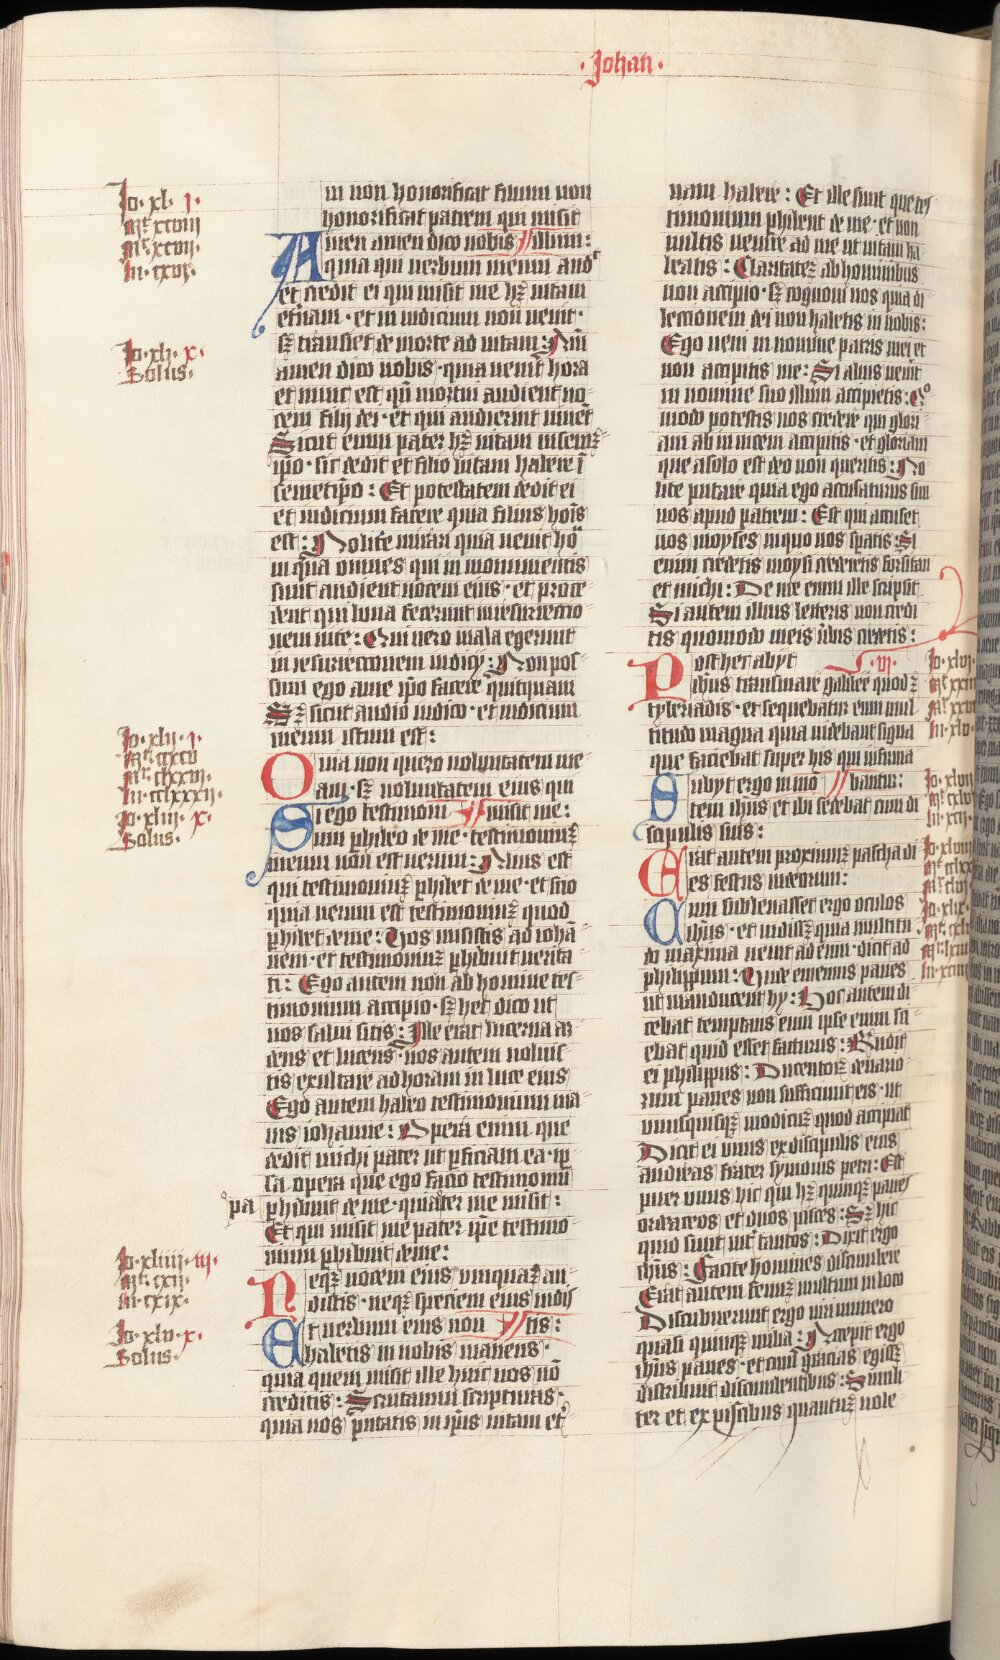 ·Johan·
Jo·xl· j·
Mt·xcviij
Mr·xcvij·
Lu·cxvj·
Jo·xlj· x·
Solus·
Jo·xlij· j·
Mr·clxxvj·
Lu·cclxxxij·
Jo·xliij· x·
Solus·
Jo·xliiij· iij·
Mt·cxij·
Lu·cxix·
Jo·xlv· x·
Solus·
m non honorificat filium non
honorificat patrem qui misit
Amen amen dico vobis illum:
quia qui verbum meum aud
et credit ei qui misit me hꝫ vitam
et̄nam · et in iudicium non venit·
sꝫ transiet de morte ad vitam: Am̄
amen dico vobis · quia venit hora
et nunc est qn̄ mortui audient vo
cem filij dei · et qui audierint vivēt
Sicut enim pater hꝫ vitam in semꝫ
ip̄o · sic dedit et filio vitam habere ī
semetip̄o : Et potestatem dedit ei
et iudicium facere quia filius hoīs
est : Nolite mirari quia venit ho
in qua omnes qui in monumentis
sunt audient vocem eius · et proce
dent qui bona fecerunt in resurrectio
nem vite : Qui vero mala egerunt
in resurrectionem iudicij : Non pos
sum ego a me ip̄o facere quitquam
Sꝫ sicut audio iudico · et iudicium
meum iustum est :
Quia non quero voluntatem me
am · sꝫ voluntatem eius qui
Si ego testimoni misit me :
um phibeo de me · testimoniuꝫ
meum non est verum : Alius est
qui testimoniuꝫ phibet de me · et scio
quia verum est testimoniuꝫ quod
phibet de me : Vos misistis ad iohā
nem · et testimoniuꝫ phibuit verita
ti : Ego autem non ab homine tes
timonium accipio · sꝫ hec dico ut
vos salui sitis : Ille erat lucerna ar
dens et lucens · vos autem voluis
tis exultare ad horam in luce eius
Ego autem habeo testimonium ma
ius iohanne : Opera enim que
dedit michi pater ut pficiam ea · ip
sa opera que ego facio testimoniū
pa phibent de me · quia ter me misit :
Et qui misit me pater ip̄e testimo
nium phibuit de me :
Neqꝫ vocem eius vnquaꝫ au
distis · neqꝫ speciem eius vidis
Et verbum eius non tis :
habetis in vobis manens ·
quia quem misit ille huic vos nō
creditis : Scrutamini scripturas ·
quia vos putatis in ip̄is vitam et̄
nam habere : Et ille sunt que tes
timonium phibent de me · et non
vultis venire ad me ut vitam ha
beatis : Claritateꝫ ab hominibus
non accipio · sꝫ cognoui vos quia di
lectionem dei non habetis in vobis :
Ego veni in nomine patris mei et
non accipitis me : Si alius venit
in nomine suo illum accipietis : Qo
modo potestis vos credere qui glori
am ab in vicem accipitis · et gloriam
que a solo est deo non queritis : No
lite putare quia ego accusaturus sim
vos apud patrem : Est qui accuset
vos moyses in quo vos spatis : Si
enim crederetis moysi crederetis forsitan
et michi : De me enim ille scripsit
Si autem illius letteris non credi
tis quomodo meis v̄bis credetis :
Post hec abijt ·vi·
ih̄us trans mare galilee quod ꝫ
tyberiadis · et sequebatur eum mul
titudo magna quia videbant signa
que faciebat super his qui infirma
Subijt ergo in mo bantur :
tem ih̄us et ibi sedebat cum di
scipulis suis :
Erat autem proximuꝫ pascha di
es festus iudeorum :
Cum subleuasset ergo oculos
ih̄us · et vidissꝫ quia multitu
do maxima venit ad eum · dicit ad
philippum : Vnde ememus panes
ut manducent hij : Hoc autem di
cebat temptans eum ipse enim sci
ebat quid esset facturus : Rn̄dit
ei philippus : Ducentoꝝ denario
rum panes non sufficiunt eis · ut
vnusquisqꝫ modicuꝫ quod accipiat
Dicit ei vnus ex discipulis eius
andreas frater symonis petri : Est
puer vnus hic qui hꝫ quinqꝫ panes
ordeaceos et duos pisces : Sꝫ hec
quid sunt int̄ tantos : Dixit ergo
ih̄us : Facite homines discumbere
Erat autem fenuꝫ multum in loco
Discubuerunt ergo viri numero
quasi quinqꝫ milia : Accepit ergo
ih̄us panes · et cum gracias egissꝫ
distribuit discumbentibus : Simili
ter et ex piscibus quantuꝫ vole
Jo·xlvj·
Jo·xlvij
Jo·xlviij
Jo·xlix·